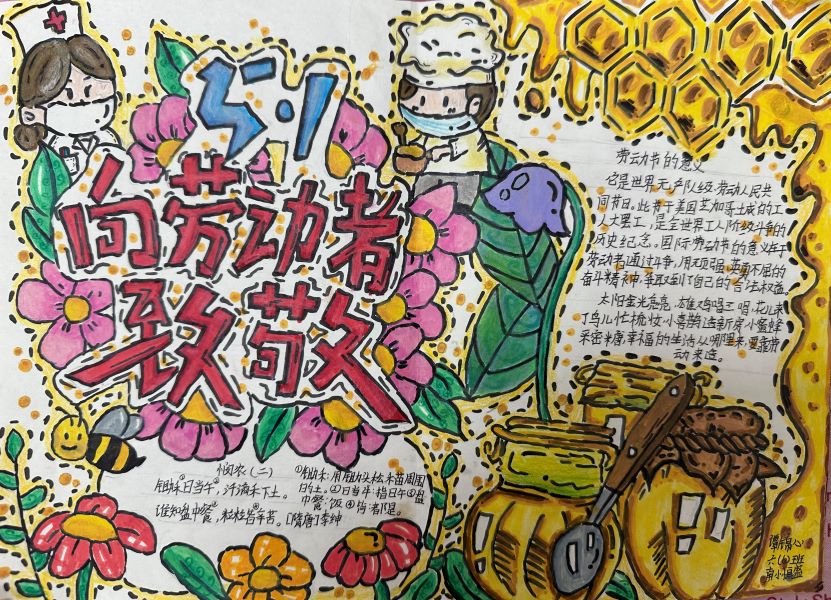 5·1
向劳动者
致敬
劳动节的意义
它是世界无产队级、劳动人民共
同节日。此节于美国芝加哥土成的工
人大罢工,是全世界工人阶级斗争的
历史纪念。国际劳动节的意义在于
劳动者通过斗争,用顽强、英勇不屈的
奋斗精神,争取到了自己的合法权益。
太阳金光亮亮,雄鸡唱三唱,花儿来
了鸟儿忙梳妆,小喜鹊造新房,小蜜蜂
采密米唐,幸福的生活从哪里来,要靠劳
动来造。
悯农(二)
锄禾①日当午②,汗滴禾下土。
谁知盘中餐③,粒粒皆④辛苦。[隋唐]李绅
①锄禾:用锄头松禾苗周围
的土。②日当午:指日午③盘
中餐:饭④皆:者阝是。
谭锦心
六(4)班